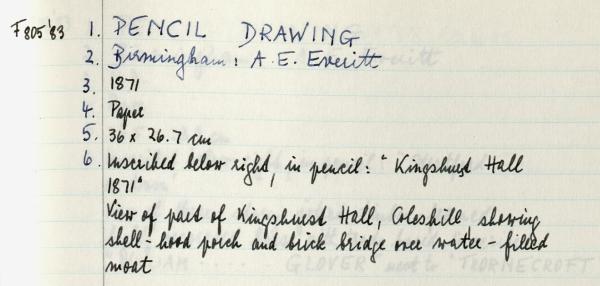 F805'83 1. PENCIL DRAWING
2. Birmingham: A.E. Everitt
3. 1871
4. Paper
5. 36 x 26.7 cm
6. Inscribed below right, in pencil: "Kingshurst Hall
1871"
View of part of Kingshurst Hall, Coleshill, showing
shell-hood porch and brick bridge over water-filled
moat